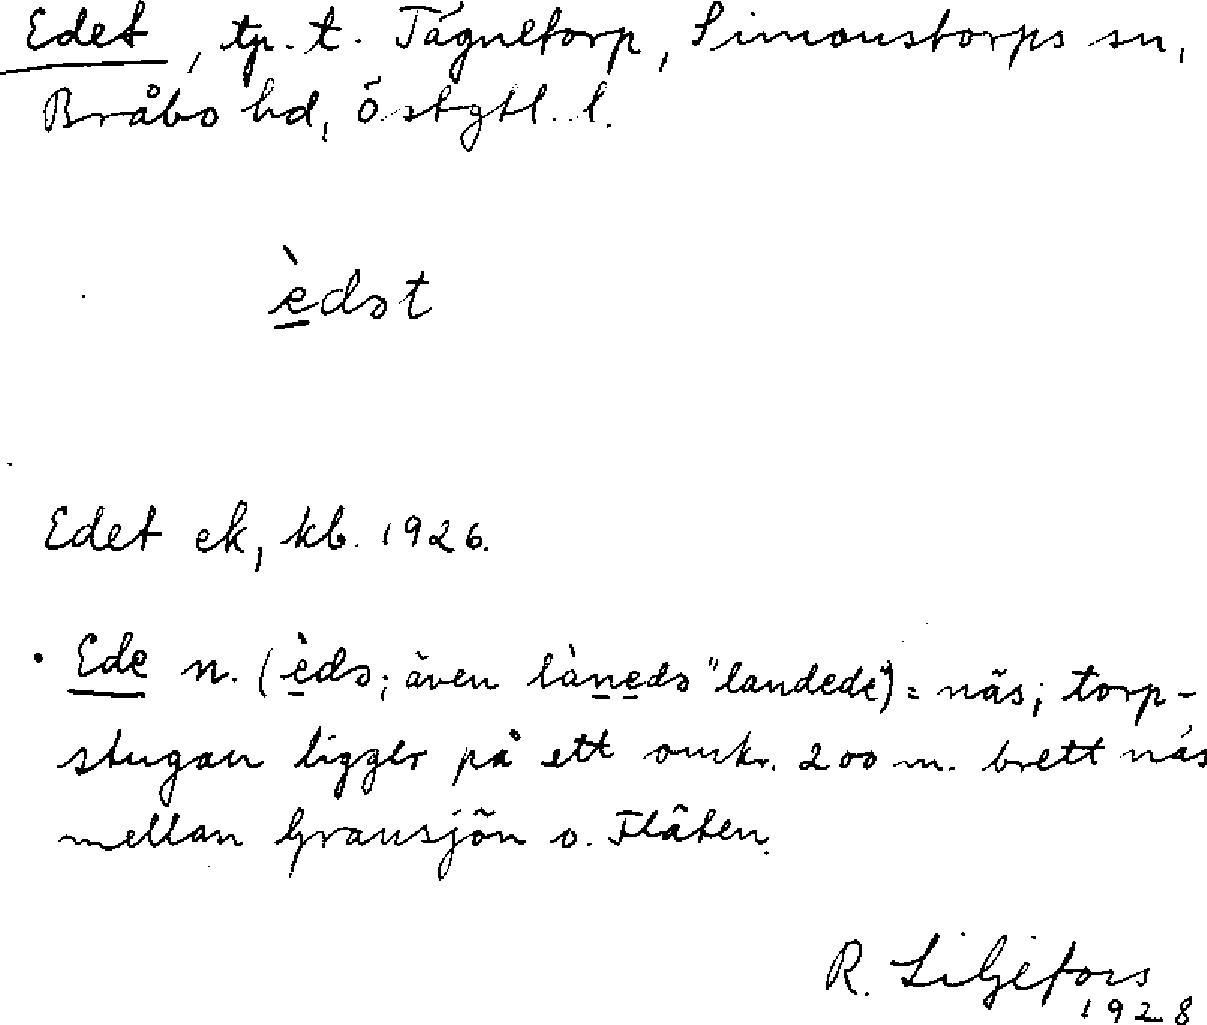 Edet, tp. t. Tägnetorp, Simonstorps sn,
Bråbo hd, Östgtl. l.
èdət
Edet ek, kb. 1926.
Ede n. (èdə; även lànedə "landede") = näs; torp-
stugan ligger på ett omkr. 200 m. brett näs
mellan Gransjön o. Flåten.
R. Liljefors
1928